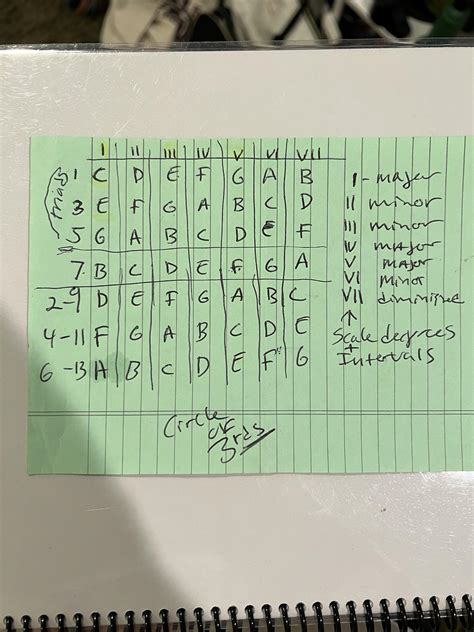 I II III IV V VI VII
triads
1 C D E F G A B I - major
3 E F G A B C D II minor
5 G A B C D E F III minor
IV major
7 B C D E F G A V major
VI minor
2-9 D E F G A B C VII diminished
↑
4-11 F G A B C D E Scale degrees
+
6-13 A B C D E F G Intervals
Circle
of
3rds